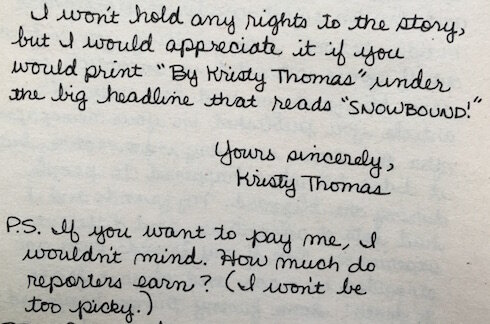 I won't hold any rights to the story,
but I would appreciate it if you
would print "By Kristy Thomas" under
the big headline that reads "SNOWBOUND!"
Yours sincerely,
Kristy Thomas
P.S. If you want to pay me, I
wouldn't mind. How much do
reporters earn? (I won't be
too picky.)